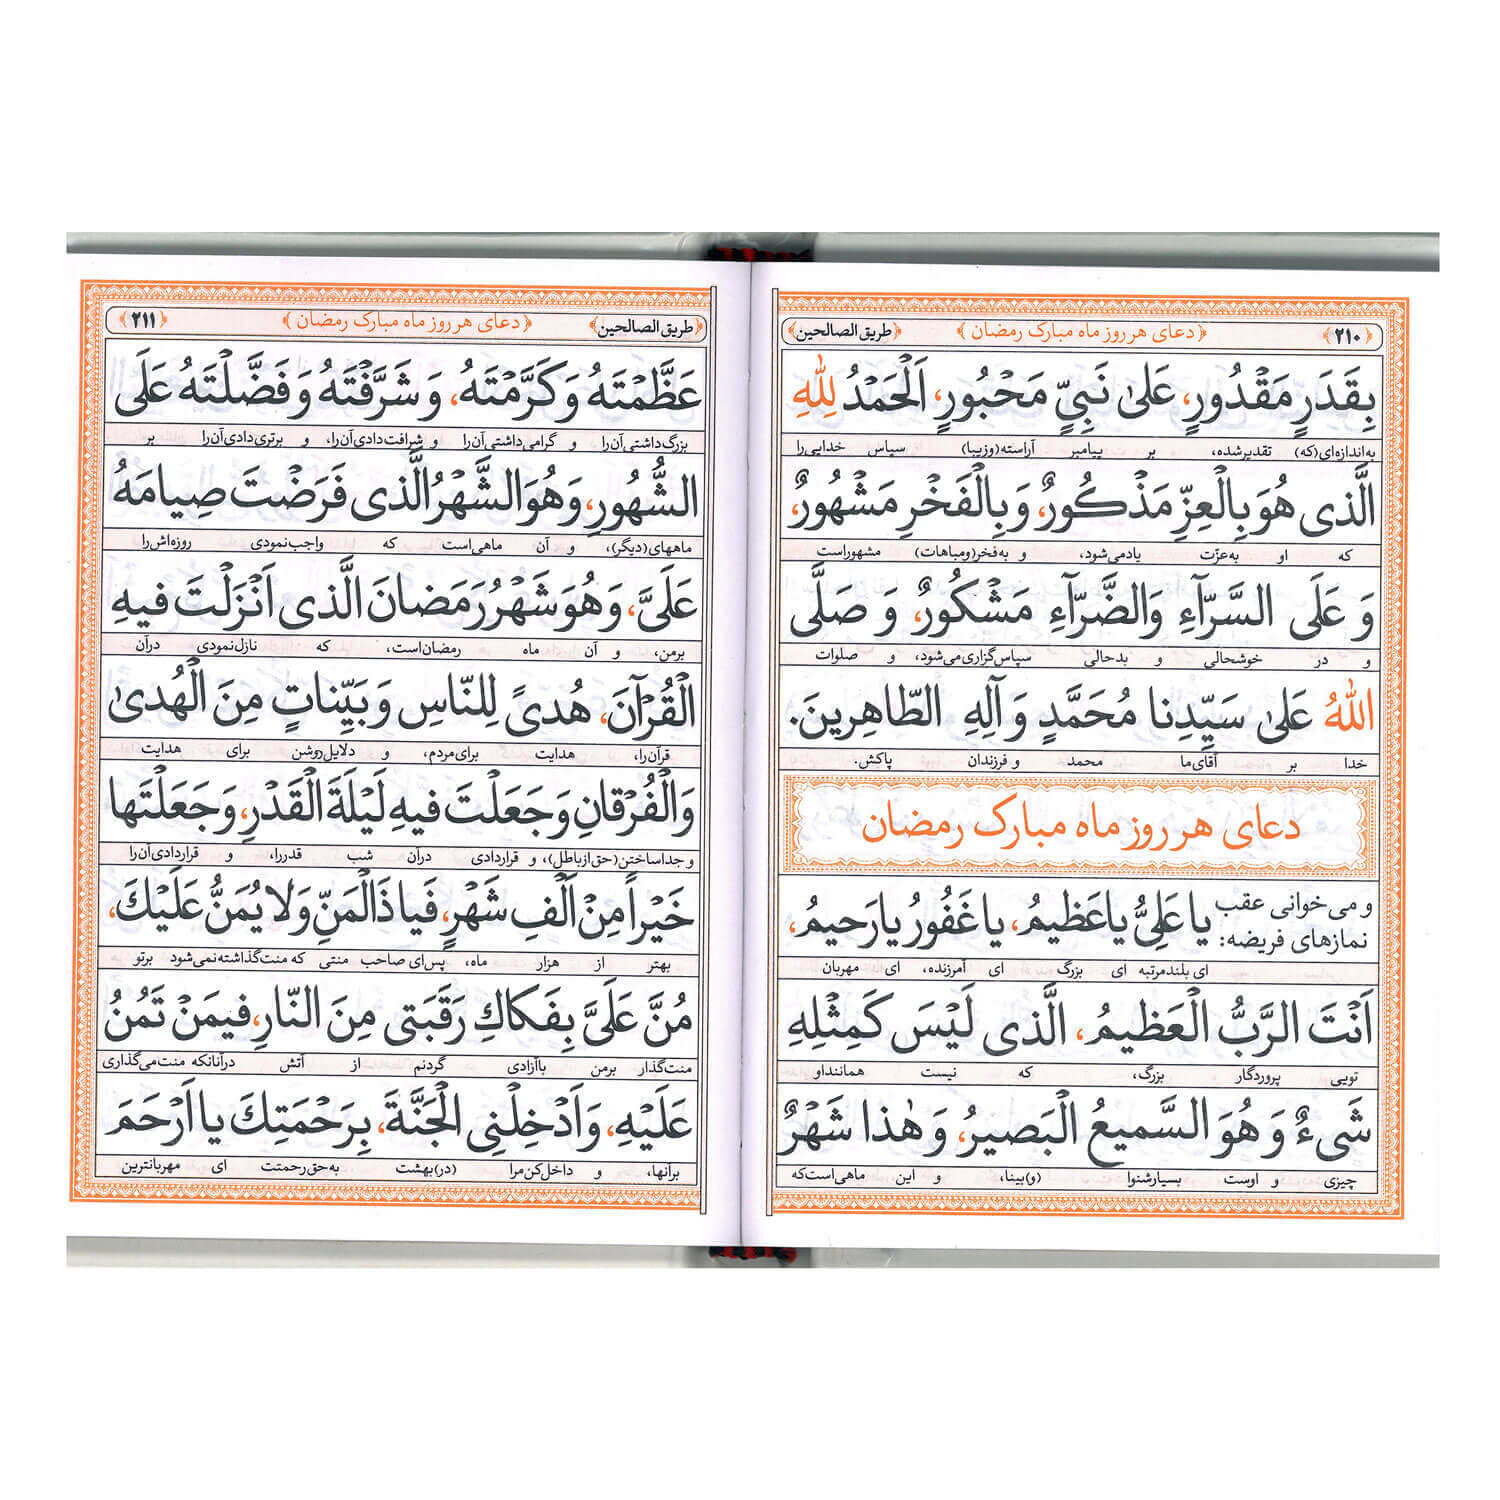 ﴿۲۱۰﴾ ﴿دعای هر روز ماه مبارک رمضان﴾ ﴿طریق الصالحین﴾
بِقَدَرٍ مَقْدُورٍ، عَلىٰ نَبِيٍّ مَحْبُورٍ، اَلْحَمْدُ لِلّٰهِ
به‌اندازه‌ای(که) تقدیرشده، بر پیامبر آراسته(وزیبا) سپاس خدایی‌را
الَّذى هُوَ بِالْعِزِّ مَذْكُورٌ، وَ بِالْفَخْرِ مَشْهُورٌ،
که او به‌عزّت یادمی‌شود، و به‌فخر(ومباهات) مشهوراست
وَ عَلَى السَّرّآءِ وَالضَّرّآءِ مَشْكُورٌ، وَ صَلَّى
و در خوشحالی و بدحالی سپاس‌گزاری‌می‌شود، و صلوات
اللّٰهُ عَلىٰ سَيِّدِنا مُحَمَّدٍ وَ آلِهِ الطّاهِرينَ.
خدا بر آقای‌ما محمد و فرزندان پاکش.
دعای هر روز ماه مبارک رمضان
و می‌خوانی عقب نمازهای فریضه: يا عَلِىُّ يا عَظيمُ، يا غَفُورُ يا رَحيمُ،
ای بلندمرتبه ای بزرگ ای آمرزنده، ای مهربان
اَنْتَ الرَّبُّ الْعَظيمُ، الَّذى لَيْسَ كَمِثْلِهِ
تویی پروردگار بزرگ، که نیست هماننداو
شَىءٌ وَ هُوَ السَّميعُ الْبَصيرُ، وَ هٰذا شَهْرٌ
چیزی و اوست بسیارشنوا (و)بینا، و این ماهی‌است‌که
﴿طریق الصالحین﴾ ﴿دعای هر روز ماه مبارک رمضان﴾ ﴿۲۱۱﴾
عَظَّمْتَهُ وَ كَرَّمْتَهُ، وَ شَرَّفْتَهُ وَ فَضَّلْتَهُ عَلَى
بزرگ‌داشتی‌آن‌را و گرامی‌داشتی‌آن‌را و شرافت‌دادی‌آن‌را، و برتری‌دادی‌آن‌را بر
الشُّهُورِ، وَ هُوَ الشَّهْرُ الَّذى فَرَضْتَ صِيامَهُ
ماههای(دیگر)، و آن ماهی‌است که واجب‌نمودی روزه‌اش‌را
عَلَىَّ، وَ هُوَ شَهْرُ رَمَضانَ الَّذى اَنْزَلْتَ فيهِ
برمن، و آن ماه رمضان‌است، که نازل‌نمودی درآن
الْقُرْآنَ، هُدىً لِلنّاسِ وَ بَيِّناتٍ مِنَ الْهُدىٰ
قرآن‌را، هدایت برای‌مردم، و دلایل‌روشن برای هدایت
وَالْفُرْقانِ وَ جَعَلْتَ فيهِ لَيْلَةَ الْقَدْرِ، وَ جَعَلْتَها
و جداساختن(حق‌ازباطل)، و قراردادی درآن شب قدررا، و قراردادی‌آن‌را
خَيْراً مِنْ اَلْفِ شَهْرٍ، فَيا ذَا الْمَنِّ وَ لا يُمَنُّ عَلَيْكَ،
بهتر از هزار ماه، پس‌ای صاحب منتی که منت‌گذاشته‌نمی‌شود برتو
مُنَّ عَلَىَّ بِفَكاكِ رَقَبَتى مِنَ النّارِ، فيمَنْ تَمُنُّ
منت‌گذار برمن باآزادی گردنم از آتش درآنانکه منت‌می‌گذاری
عَلَيْهِ، وَ اَدْخِلْنِى الْجَنَّةَ، بِرَحْمَتِكَ يا اَرْحَمَ
برآنها، و داخل‌کن‌مرا (در)بهشت به‌حق‌رحمتت ای مهربانترین